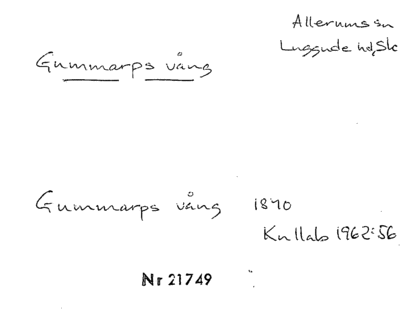 Allerums sn
Luggude hd, Sk
Gummarps vång
Gummarps vång 1840
Kullab 1962:56
Nr 21749